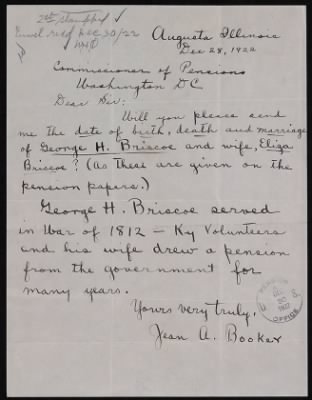 2ct stamped
Envel rec'd Dec 30/22
Augusta Illinois
Dec 28, 1922
Commissioner of Pensions
Washington DC
Dear Sir:
Will you please send
me the date of birth, death and marriage
of George H. Briscoe and wife, Eliza
Briscoe? (as these are given on the
pension papers.)
George H. Briscoe served
in War of 1812 – Ky Volunteers
and his wife drew a pension
from the government for
many years.
Yours very truly,
Jean A. Booker
OFFICE